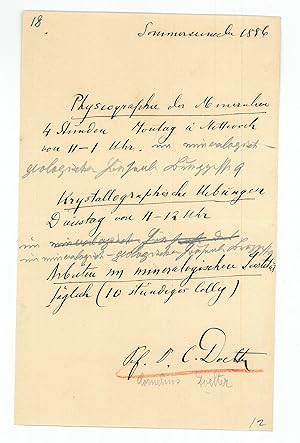 18.
Sommersemester 1886
Physiographie der Mineralien
4 Stunden Montag u Mittwoch
von 11-1 Uhr. im mineralogisch-
geologischen Hörsaale Burggasse 9
Krystallographische Uebungen
Dienstag von 11-12 Uhr
im
im mineralogisch-geologischen Hörsaale Burgg.
Arbeiten im mineralogischen Institute
täglich (10 stündiges Colleg)
Pf. D. C. Doelter
Cornelius Doelter
12